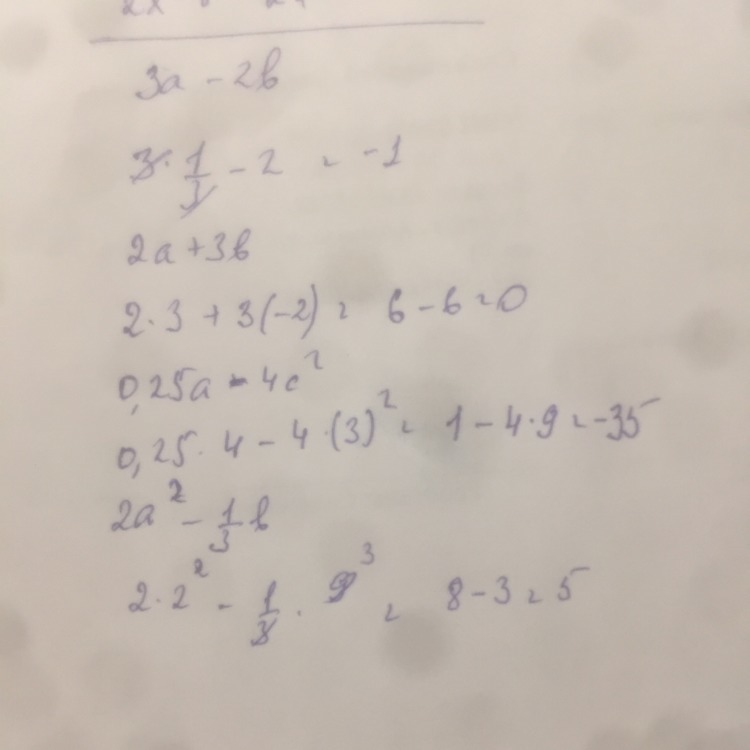 3a - 2b
3 · 1/3 - 2 = -1
2a + 3b
2 · 3 + 3(-2) = 6 - 6 = 0
0,25a - 4c²
0,25 · 4 - 4 · (3)² = 1 - 4 · 9 = -35
2a² - 1/3 b
2 · 2² - 1/3 · 9³ = 8 - 3 = 5